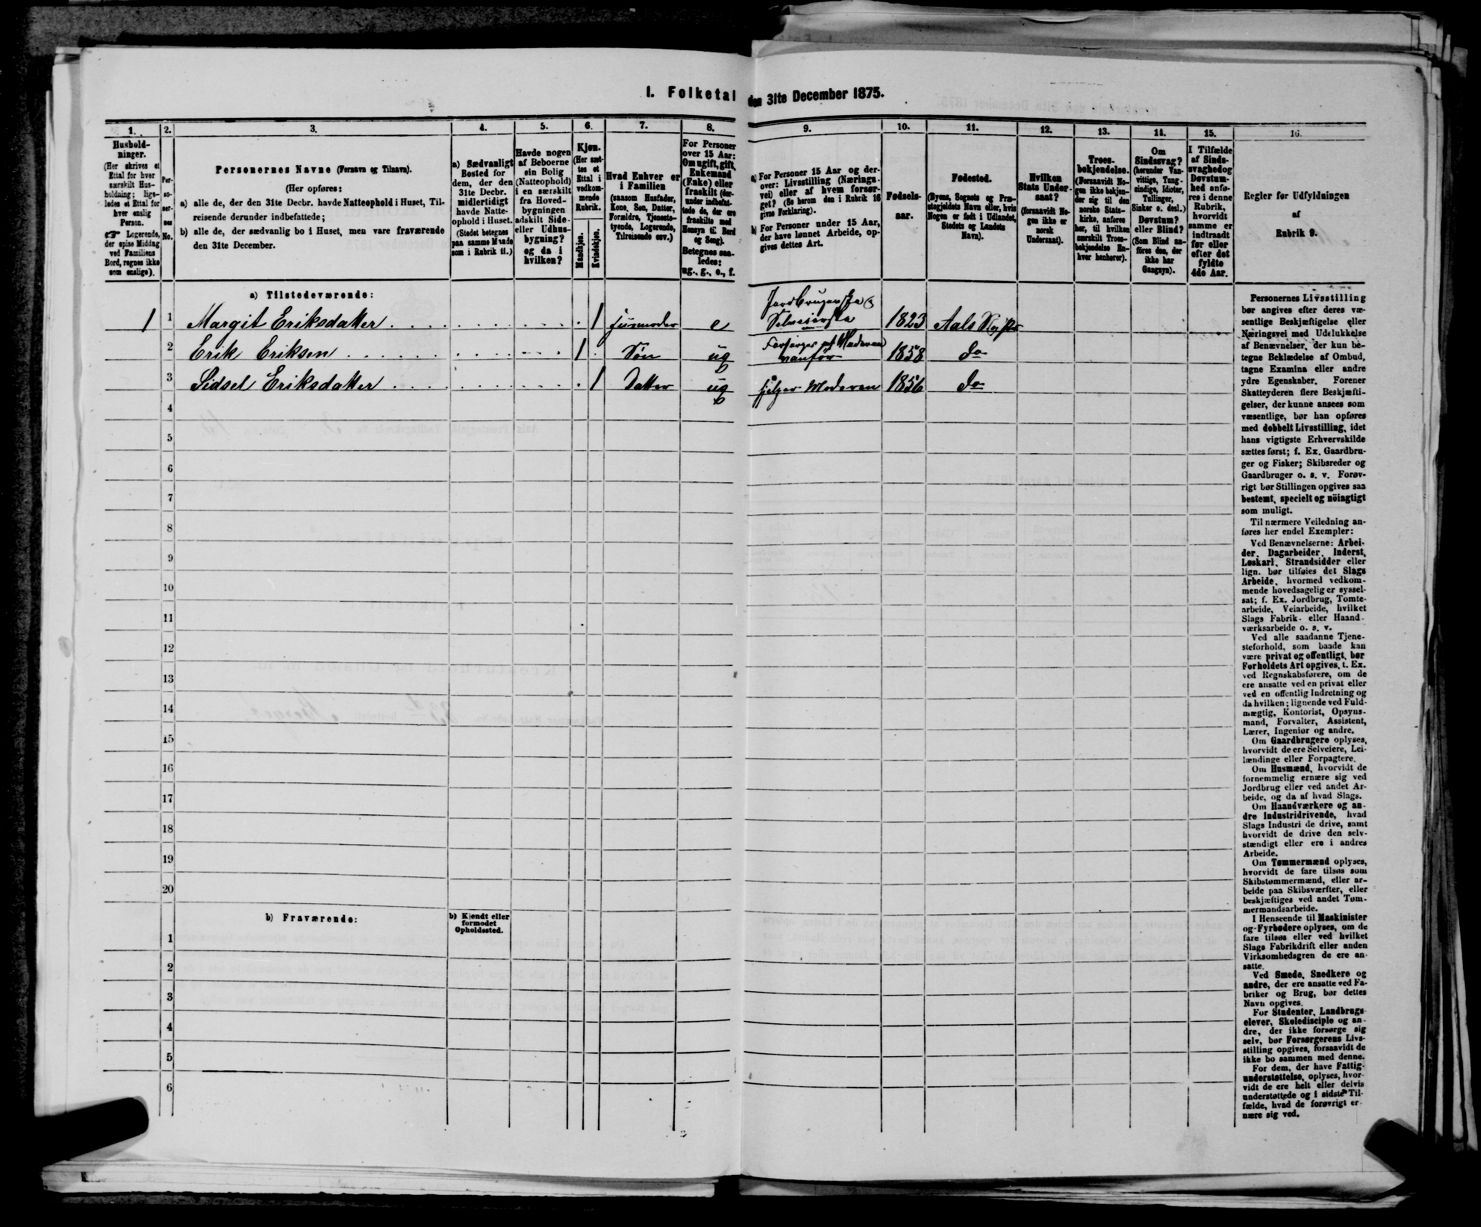 I. Folketal den 31te December 1875.
1.
Husholdninger.
(Her skrives et Ettal for hver særskilt Husholdning; ligeledes et Ettal for hver enslig Person.
☞ Logerende, der spise Middag ved Familiens Bord, regnes ikke som enslige).
2.
Personernes No.
3.
Personernes Navne (Fornavn og Tilnavn).
(Her opføres:
a) alle de, der den 31te Decbr. havde Natteophold i Huset, Tilreisende derunder indbefattede;
b) alle de, der sædvanlig bo i Huset, men vare fraværende den 31te December.
4.
a) Sædvanligt Bosted for dem, der den 31te Decbr. midlertidigt havde Natteophold i Huset.
(Stedet betegnes paa samme Maade som i Rubrik 11.)
5.
Havde nogen af Beboerne sin Bolig (Natteophold) i en særskilt fra Hovedbygningen adskilt Side- eller Udhusbygning? og da i hvilken?
6.
Kjøn.
(Her sættes et Ettal i vedkommende Rubrik.
Mandkjøn.
Kvindekjøn.
7.
Hvad Enhver er i Familien
(saasom Husfader, Kone, Søn, Datter, Forældre, Tjenestetyende, Logerende, Tilreisende osv.)
8.
For Personer over 15 Aar: Om ugift, gift, Enkemand (Enke) eller fraskilt (derunder indbefattede de, der ere fraskilte med Hensyn til Bord og Seng).
Betegnes saaledes: ug., g., e., f.
9.
a) For Personer 15 Aar og derover: Livsstilling (Næringsvei) eller af hvem forsørget? (Se herom den i Rubrik 16 givne Forklaring).
b) For Personer under 15 Aar, der have lønnet Arbeide, opgives dettes Art.
10.
Fødselsaar.
11.
Fødested.
(Byens, Sognets og Præstegjeldets Navn eller, hvis Nogen er født i Udlandet, Stedets og Landets Navn).
12.
Hvilken Stats Undersaat?
(forsaavidt Nogen ikke er norsk Undersaat).
13.
Troesbekjendelse.
(Forsaavidt Nogen ikke bekjender sig til den norske Statskirke, anføres her, til hvilken særskilt Troesbekjendelse Enhver henhører).
14.
Om Sindssvag?
(herunder Vanvittige, Tungsindige, Idioter, Tullinger, Sinker o. desl.)
Døvstum? eller Blind?
(Som Blind anføres den, der ikke har Gangsyn).
15.
I Tilfælde af Sindssvaghed og Døvstumhed anføres i denne Rubrik, hvorvidt samme er indtraadt før eller efter det fyldte 4de Aar.
16.
Regler for Udfyldningen af Rubrik 9.
a) Tilstedeværende:
1 1 Margit Eriksdatter 1 Husmoder e Jordbrugerske Selveierske 1823 Aals Sogn
2 Erik Eriksen 1 Søn ug Forsørges af Moderen vanfør 1858 do
3 Sidsel Eriksdatter 1 Datter ug hjelper Moderen 1856 do
4
5
6
7
8
9
10
11
12
13
14
15
16
17
18
19
20
b) Fraværende:
b) Kjendt eller formodet Opholdssted.
1
2
3
4
5
6
Personernes Livsstilling
bør angives efter deres væ-
sentlige Beskjæftigelse eller
Næringsvei med Udelukkelse
af Benævnelser, der kun be-
tegne Beklædelse af Ombud,
tagne Examina eller andre
ydre Egenskaber. Forener
Skatteyderen flere Beskjæfti-
gelser, der kunne ansees som
væsentlige, bør han opføres
med dobbelt Livsstilling, idet
hans vigtigste Erhvervskilde
sættes først; f. Ex. Gaardbru-
ger og Fisker; Skibsreder og
Gaardbruger o. s. v. Forøv-
rigt bør Stillingen opgives saa
bestemt, specielt og nøiagtigt
som muligt.
Til nærmere Veiledning an-
føres her endel Exempler:
Ved Benævnelserne: Arbei-
der, Dagarbeider, Inderst,
Løskarl, Strandsidder eller
lign. bør tilføies det Slags
Arbeide, hvormed vedkom-
mende hovedsagelig er syssel-
sat; f. Ex. Jordbrug, Tomte-
arbeide, Veiarbeide, hvilket
Slags Fabrik- eller Haand-
værksarbeide o. s. v.
Ved alle saadanne Tjene-
steforhold, som baade kan
være privat og offentligt, bør
Forholdets Art opgives, t. Ex.
ved Regnskabsførere, om de
ere ansatte ved en privat eller
ved en offentlig Indretning og
da hvilken; lignende ved Fuld-
mægtig, Kontorist, Opsyns-
mand, Forvalter, Assistent,
Lærer, Ingeniør og andre.
Om Gaardbrugere oplyses,
hvorvidt de ere Selveiere, Lei-
lændinge eller Forpagtere.
Om Husmænd, hvorvidt de
fornemmelig ernære sig ved
Jordbrug eller ved andet Ar-
beide, og da af hvad Slags.
Om Haandværkere og an-
dre Industridrivende, hvad
Slags Industri de drive, samt
hvorvidt de drive den selv-
stændigt eller ere i andres
Arbeide.
Om Tømmermænd oplyses,
hvorvidt de fare tilsøs som
Skibstømmermænd, eller ar-
beide paa Skibsværfter, eller
beskjæftiges ved andet Tøm-
mermandsarbeide.
I Henseende til Maskinister
og Fyrbødere oplyses, om de
fare tilsøs eller ved hvilket
Slags Fabrikdrift eller anden
Virksomhedsgren de ere an-
satte.
Ved Smede, Snedkere og
andre, der ere ansatte ved Fa-
briker og Brug, bør dettes
Navn opgives.
For Studenter, Landbrugs-
elever, Skoledisciple og an-
dre, der ikke forsørge sig
selv, bør Forsørgerens Livs-
stilling opgives, forsaavidt de
ikke bo sammen med denne.
For dem, der have Fattig-
understøttelse, oplyses, hvor-
vidt de ere helt eller delvis
understøttede og i sidste Til-
fælde, hvad de forøvrigt er-
nære sig ved.